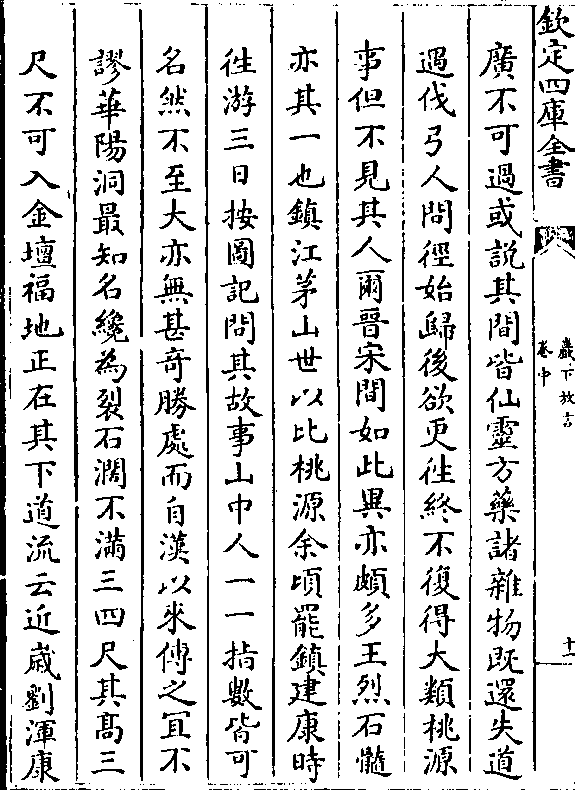 欽定四庫全書
巖下放言
卷中
十一
廣不可過或說其間皆仙靈方藥諸雜物既還失道
遇伐弓人問徑始歸後欲更徃終不復得大類桃源
事但不見其人爾晉宋間如此異亦頗多王烈石髓
亦其一也鎮江茅山世以比桃源余頃罷鎮建康時
徃游三日按圖記問其故事山中人一一指數皆可
名然不至大亦無甚奇勝處而自漢以來傳之冝不
謬華陽洞最知名纔為裂石濶不滿三四尺其髙三
尺不可入金壇福地正在其下道流云近歲劉渾康